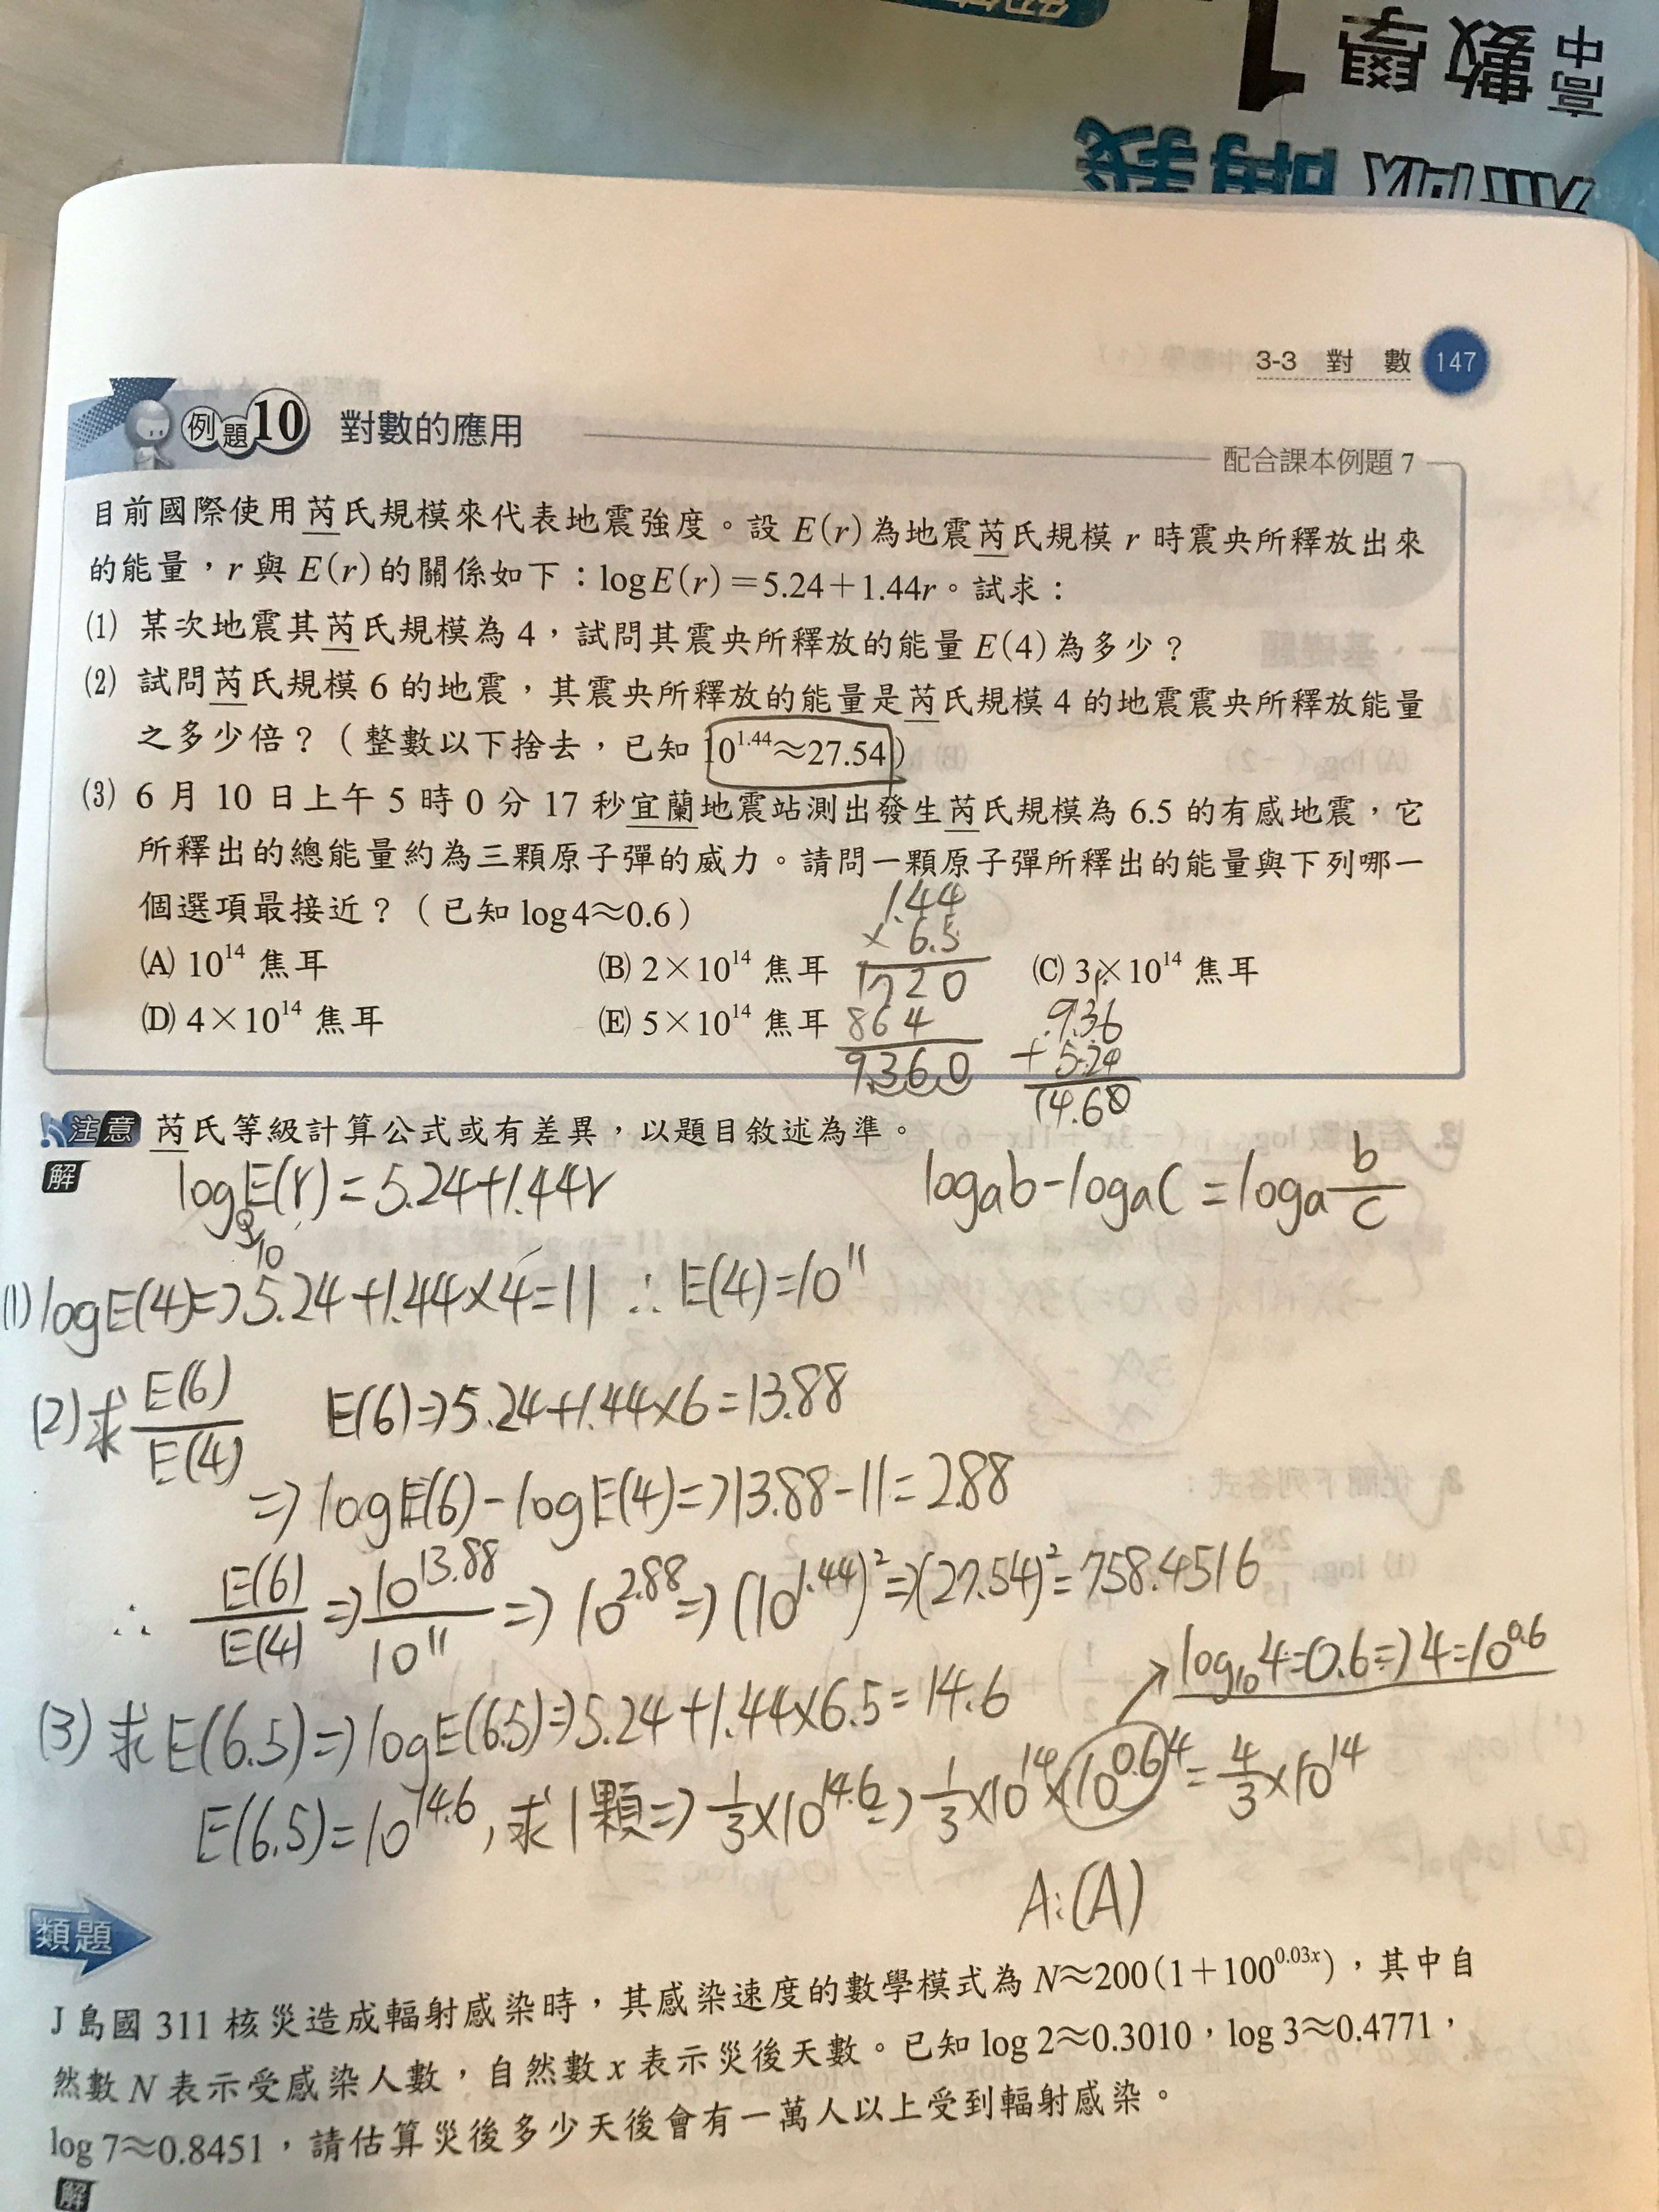 高中
數學 1
3-3 對 數 147
例題10 對數的應用
配合課本例題 7
目前國際使用芮氏規模來代表地震強度。設 E(r) 為地震芮氏規模 r 時震央所釋放出來
的能量，r 與 E(r) 的關係如下：log E(r)＝5.24＋1.44r。試求：
(1) 某次地震其芮氏規模為 4，試問其震央所釋放的能量 E(4) 為多少？
(2) 試問芮氏規模 6 的地震，其震央所釋放的能量是芮氏規模 4 的地震震央所釋放能量
之多少倍？（整數以下捨去，已知 10^1.44≈27.54）
(3) 6 月 10 日上午 5 時 0 分 17 秒宜蘭地震站測出發生芮氏規模為 6.5 的有感地震，它
所釋出的總能量約為三顆原子彈的威力。請問一顆原子彈所釋出的能量與下列哪一
個選項最接近？（已知 log 4≈0.6）
1.44
× 6.5
1720
864
9.360
(A) 10^14 焦耳 (B) 2×10^14 焦耳 (C) 3×10^14 焦耳
(D) 4×10^14 焦耳 (E) 5×10^14 焦耳
9.36
+ 5.24
14.60
注意 芮氏等級計算公式或有差異，以題目敘述為準。
解 logE(r)=5.24+1.44r
10
logab-logac=loga b/c
(1) logE(4)=>5.24+1.44×4=11 ∴E(4)=10^11
(2) 求 E(6)/E(4) E(6)=>5.24+1.44×6=13.88
=> logE(6)-logE(4)=>13.88-11=2.88
∴ E(6)/E(4) => 10^13.88/10^11 => 10^2.88 => (10^1.44)^2 => (27.54)^2=758.4516
log10 4=0.6=>4=10^0.6
(3) 求E(6.5)=>logE(6.5)=>5.24+1.44×6.5=14.6
E(6.5)=10^14.6, 求1顆=> 1/3×10^14.6 => 1/3×10^14×10^0.6 4 = 4/3×10^14
A:(A)
類題
J 島國 311 核災造成輻射感染時，其感染速度的數學模式為 N≈200(1＋100^0.03x)，其中自
然數 N 表示受感染人數，自然數 x 表示災後天數。已知 log 2≈0.3010，log 3≈0.4771，
log 7≈0.8451，請估算災後多少天後會有一萬人以上受到輻射感染。
解